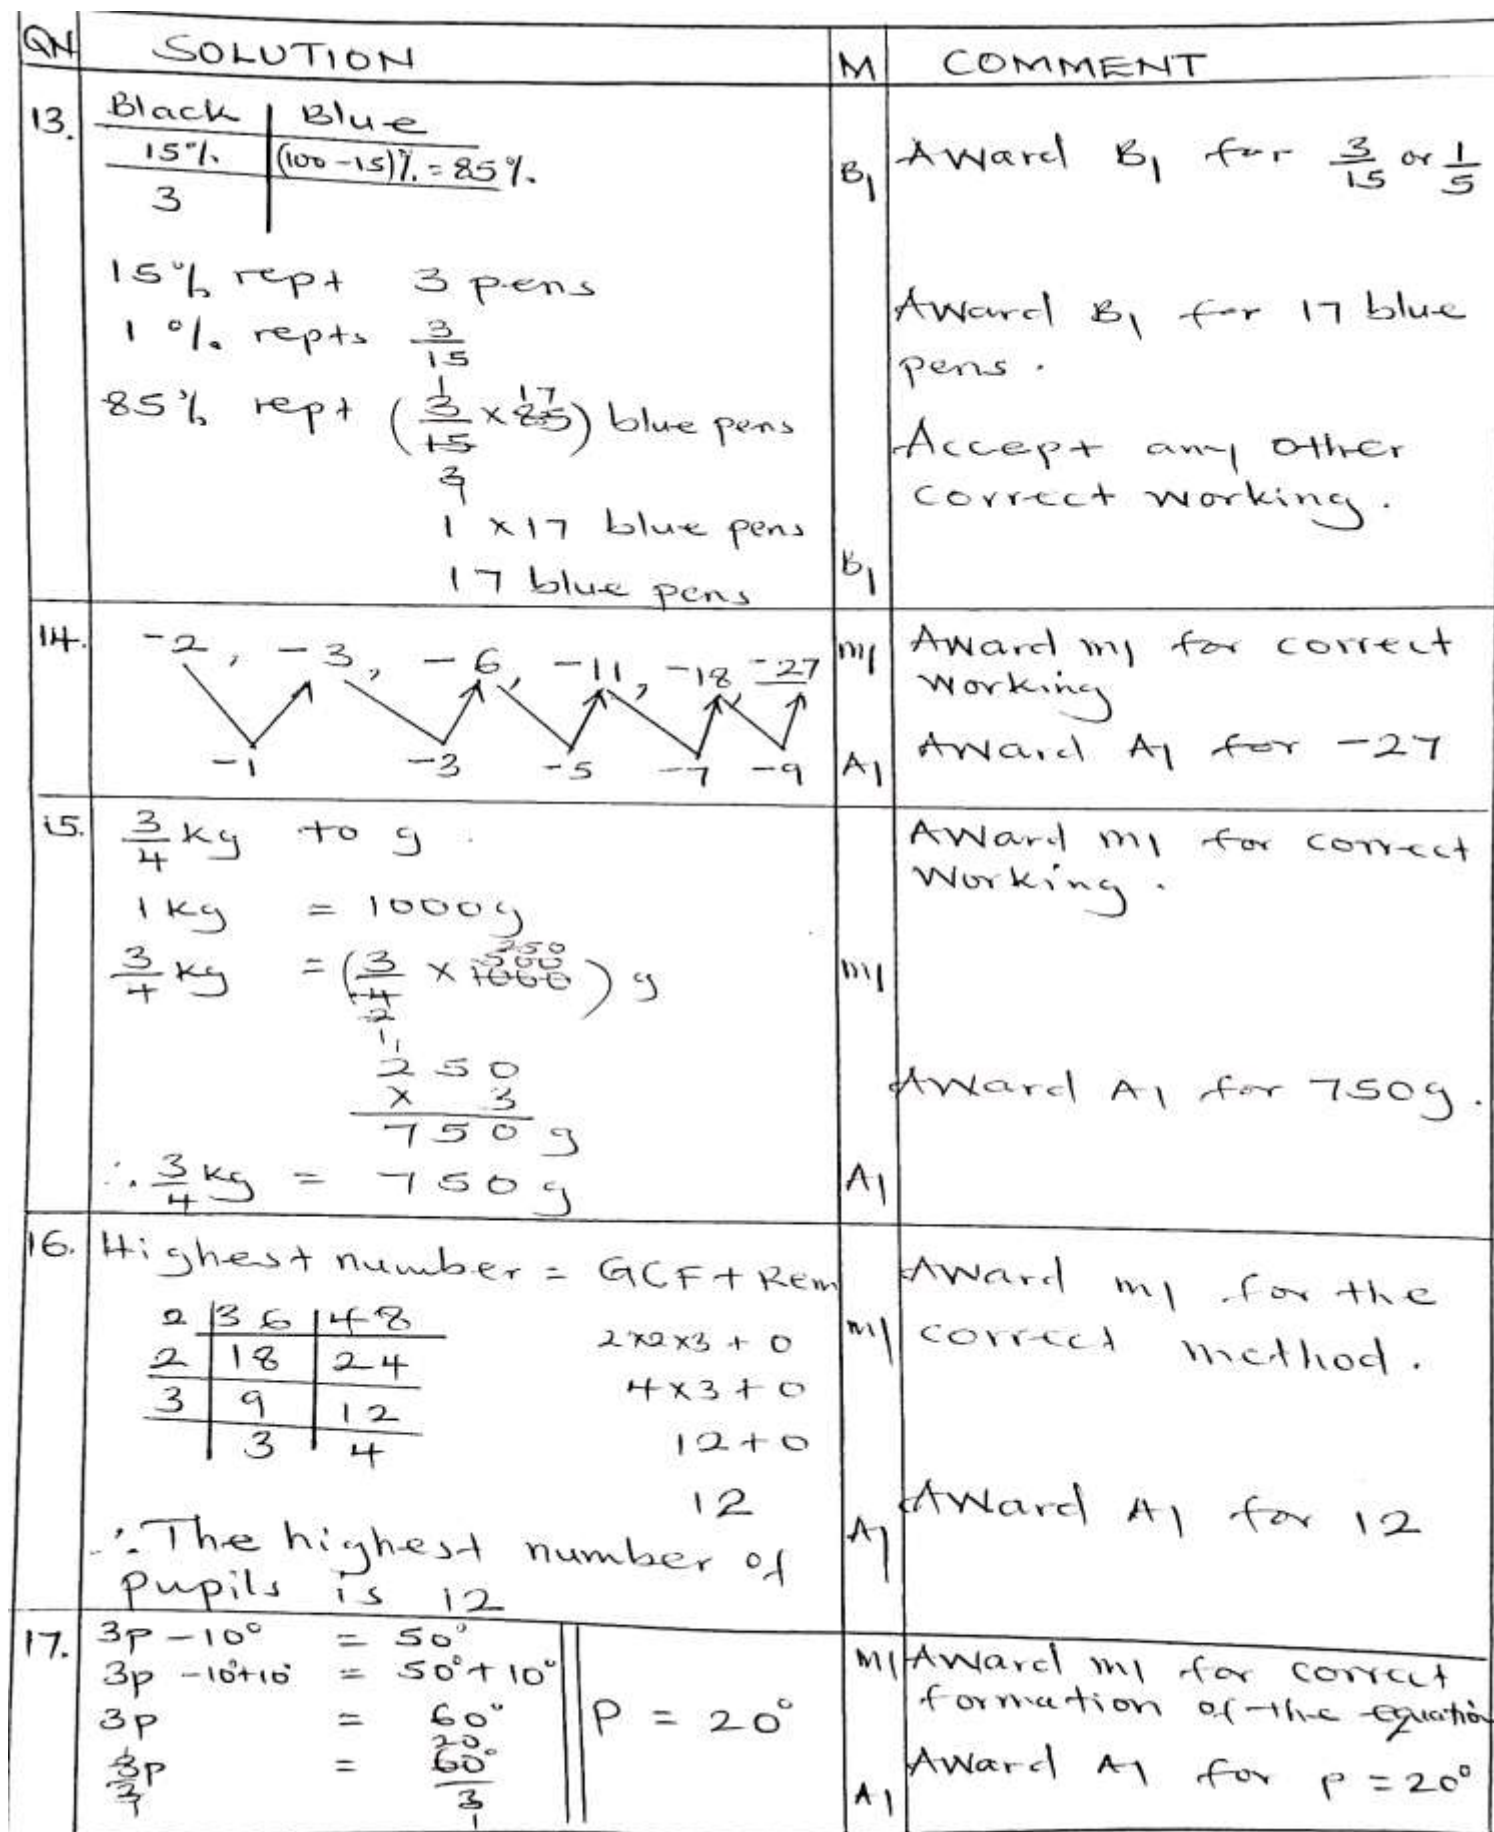 QN SOLUTION M COMMENT
13. Black Blue
15% (100-15)% = 85%
3
B1 Award B1 for 3/15 or 1/5
15% rept 3 pens
1% repts 3/15
85% rept (3/15 × 85) blue pens
1 17
3
1
1 × 17 blue pens
17 blue pens
B1
Award B1 for 17 blue
pens.
Accept any other
correct working.
14. -2, -3, -6, -11, -18, -27
-1 -3 -5 -7 -9
M1 Award M1 for correct
working
A1 Award A1 for -27
15. 3/4 kg to g.
1 kg = 1000g
3/4 kg = (3/4 × 1000) g
250
500
2
1
250
× 3
750 g
∴ 3/4 kg = 750 g
Award M1 for correct
Working.
M1
Award A1 for 750g.
A1
16. Highest number = GCF + Rem
2 36 48
2 18 24
3 9 12
3 4
2×2×3 + 0
4×3 + 0
12 + 0
12
∴ The highest number of
pupils is 12
M1 Award M1 for the
correct method.
A1 Award A1 for 12
17. 3p - 10° = 50°
3p - 10°+10° = 50° + 10°
3p = 60°
3p/3 = 60°/3
1 20
1
P = 20°
M1 Award M1 for correct
formation of the equation
A1 Award A1 for p = 20°